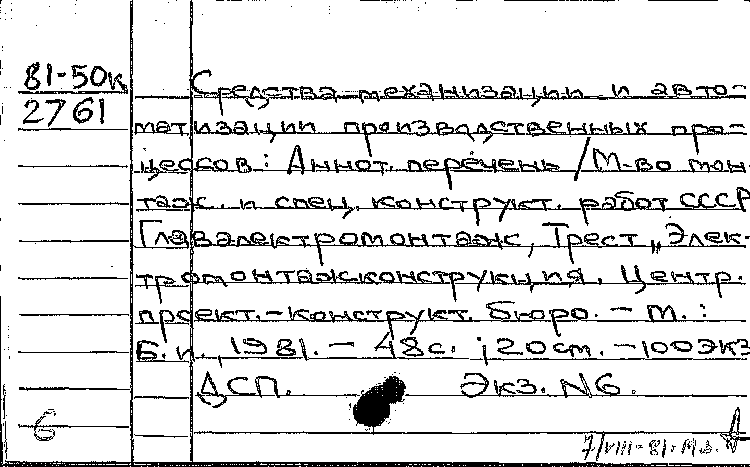 81-50к
2761
Средства механизации и авто-
матизации производственных про-
цессов: Аннот. перечень / М-во мон-
таж. и спец. конструкт. работ СССР
Главэлектромонтаж, Трест „Элек-
тромонтажконструкция. Центр.
проект.-конструкт. бюро. – М.:
Б.и., 1981. – 48с. ; 20см. – 100экз
ДСП. Экз. N6.
6
7/VIII-81. М.З.